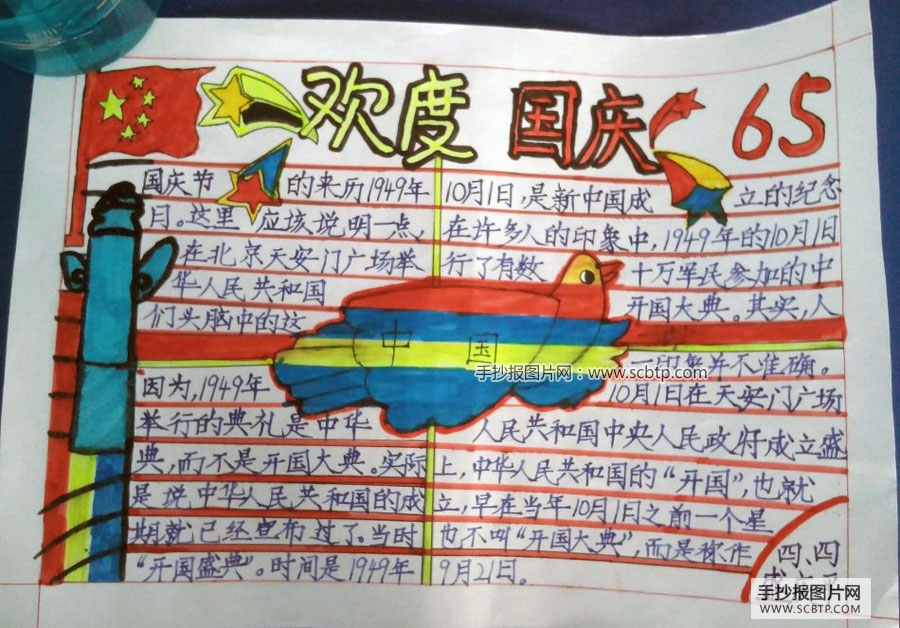 欢度 国庆 65
国庆节 的来历1949年 10月1日,是新中国成 立的纪念
日。这里 应该说明一点, 在许多人的印象中,1949年的10月1日
在北京天安门广场举 行了有数 十万军民参加的中
华人民共和国 开国大典。其实,人
们头脑中的这
中 国
一印象并不准确。
手抄报图片网:www.scbtp.com
因为,1949年 10月1日在天安门广场
举行的典礼是中华 人民共和国中央人民政府成立盛
典,而不是开国大典。实际 上,中华人民共和国的“开国”,也就
是说中华人民共和国的成 立,早在当年10月1日之前一个星
期就已经宣布过了。当时 也不叫“开国大典”,而是称作
“开国盛典”。时间是1949年 9月21日。
四、四
手抄报图片网
WWW.SCBTP.COM